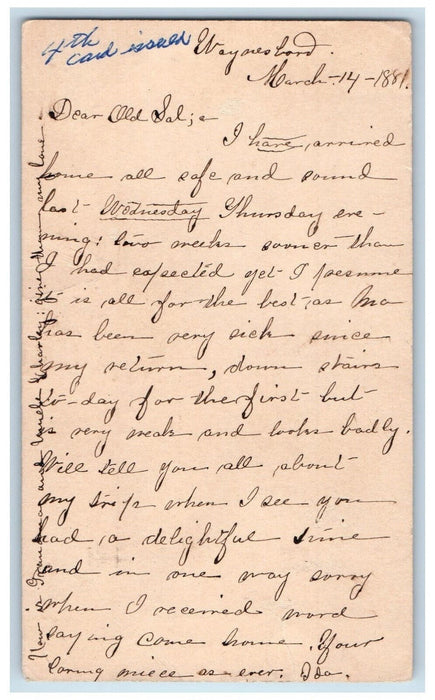 4th
card issued
Waynesboro.
March-14-1881.
Dear Old Sal;-
I have, arrived
home all safe and sound
last Wednesday Thursday eve-
ning: two weeks sooner than
I had expected yet I presume
it is all for the best as Ma
has been very sick since
my return, down stairs
to-day for the first but
is very weak and looks badly.
Will tell you all about
my trip when I see you
had a delightful time
and in one way sorry
when I received word
saying come home. Your
loving niece as ever. Ida.
How is Grandma and Uncle Charley: give them my love